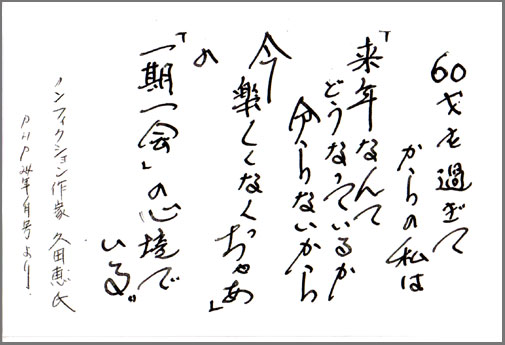 60才を過ぎて
からの私は
「来年なんて
どうなっているか
分らないから
今楽しくなくっちゃあ」
の
「一期一会」の心境で
いる〟
ノンフィクション作家 久田恵氏
月号より.